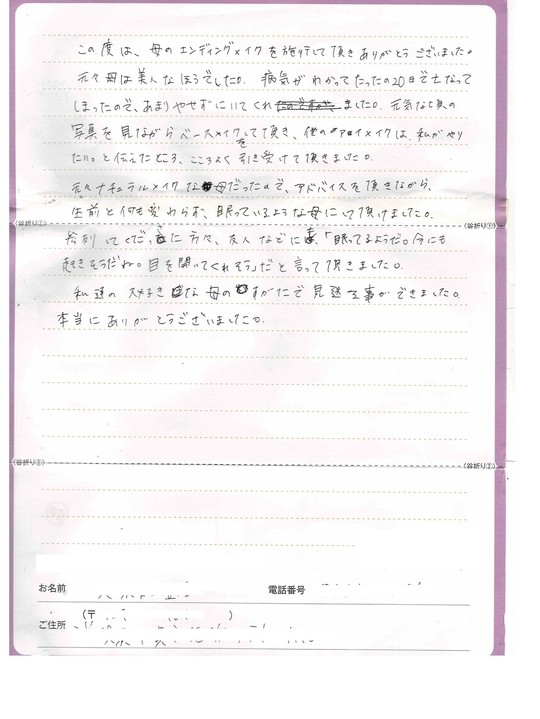 この度は、母のエンディングメイクを施行して頂きありがとうございました。
元々母は美人なほうでした。病気がわかってたったの20日で亡なって
しまったので、あまりやせずにいてくれました。元気な頃の
写真を見ながらベースメイクをして頂き、他のメイクは、私がやり
たい。と伝えたところ、こころよく引き受けて頂きました。
元々ナチュラルメイクな母だったので、アドバイスを頂きながら、
生前と何も変わらず、眠っているような母にして頂けました。
参列してくださった方々、友人などにも「眠ってるようだ。今にも
起きそうだね。目を開いてくれそう」だと言って頂きました。
私達の大好きな母のすがたで見送る事ができました。
本当にありがとうございました。
〈谷折り①〉
〈谷折り①〉
〈谷折り②〉
〈谷折り②〉
お名前
電話番号
ご住所
(〒 )